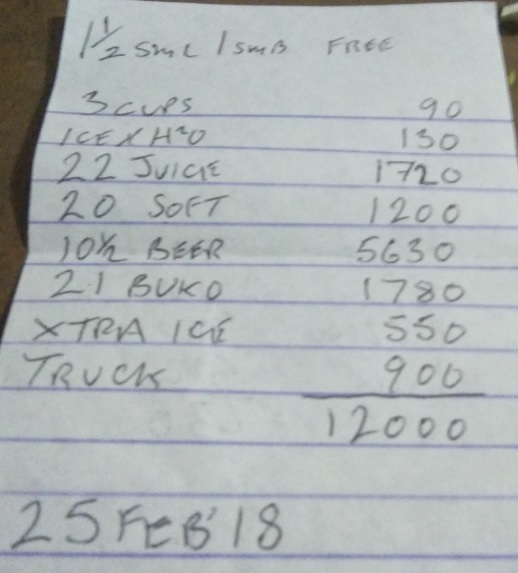 1 1/2 SML 1 SMB FREE
3 CUPS 90
ICE X H²O 130
22 JUICE 1720
20 SOFT 1200
10 1/2 BEER 5630
21 BUKO 1780
XTRA ICE 550
TRUCK 900
12000
25 FEB'18